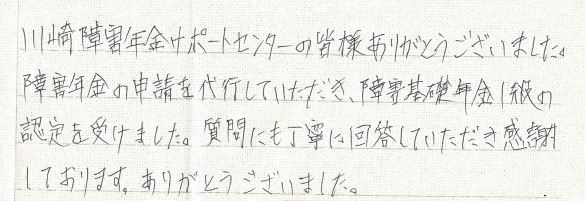 川崎障害年金サポートセンターの皆様ありがとうございました。
障害年金の申請を代行していただき、障害基礎年金1級の
認定を受けました。質問にも丁寧に回答していただき感謝
しております。ありがとうございました。